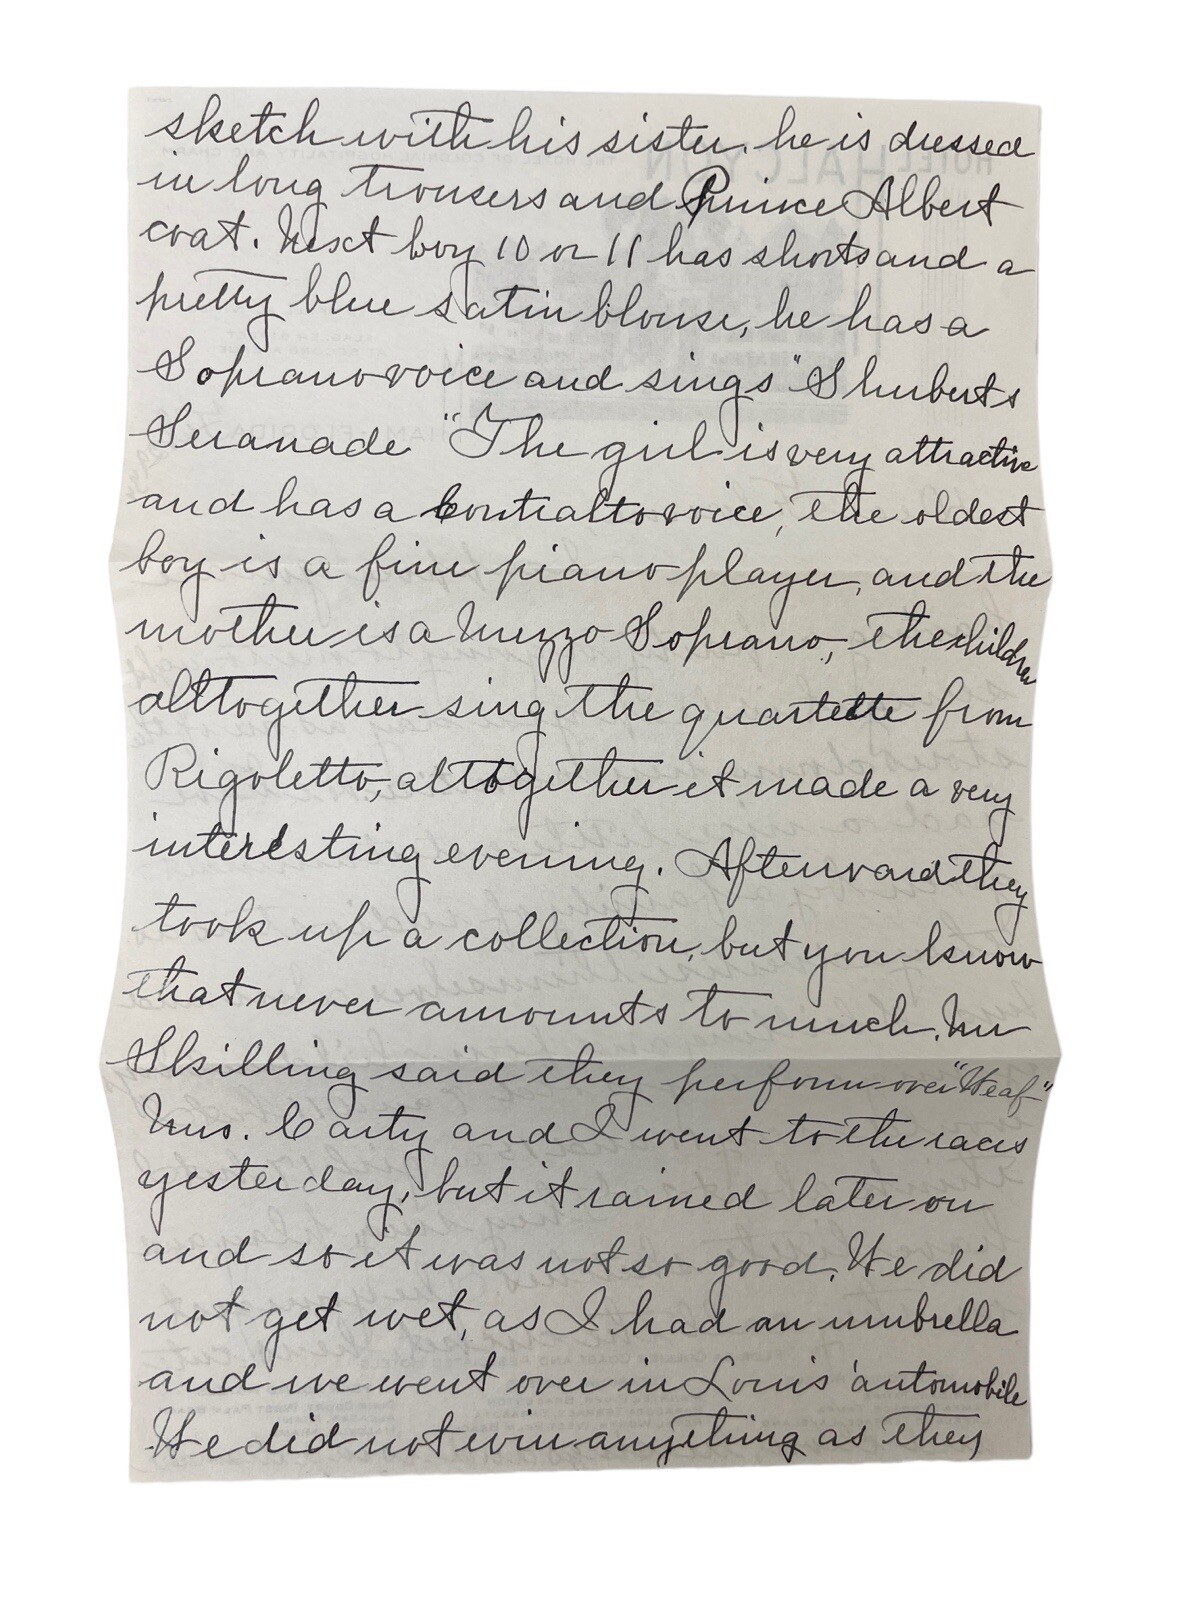 sketch with his sister, he is dressed
in long trousers and Prince Albert
coat. Next boy 10 or 11 has shorts and a
pretty blue satin blouse, he has a
Soprano voice and sings "Shuberts
Seranade" The girl is very attractive
and has a Contralto voice, the oldest
boy is a fine piano player, and the
mother is a Mezzo Soprano, the children
alltogether sing the quartette from
Rigoletto, altogether it made a very
interesting evening. Afterward they
took up a collection, but you know
that never amounts to much. Mr
Skilling said they perform over "Weaf"
Mrs. Carty and I went to the races
yesterday, but it rained later on
and so it was not so good. We did
not get wet, as I had an umbrella
and we went over in Louis' automobile
We did not win anything as they